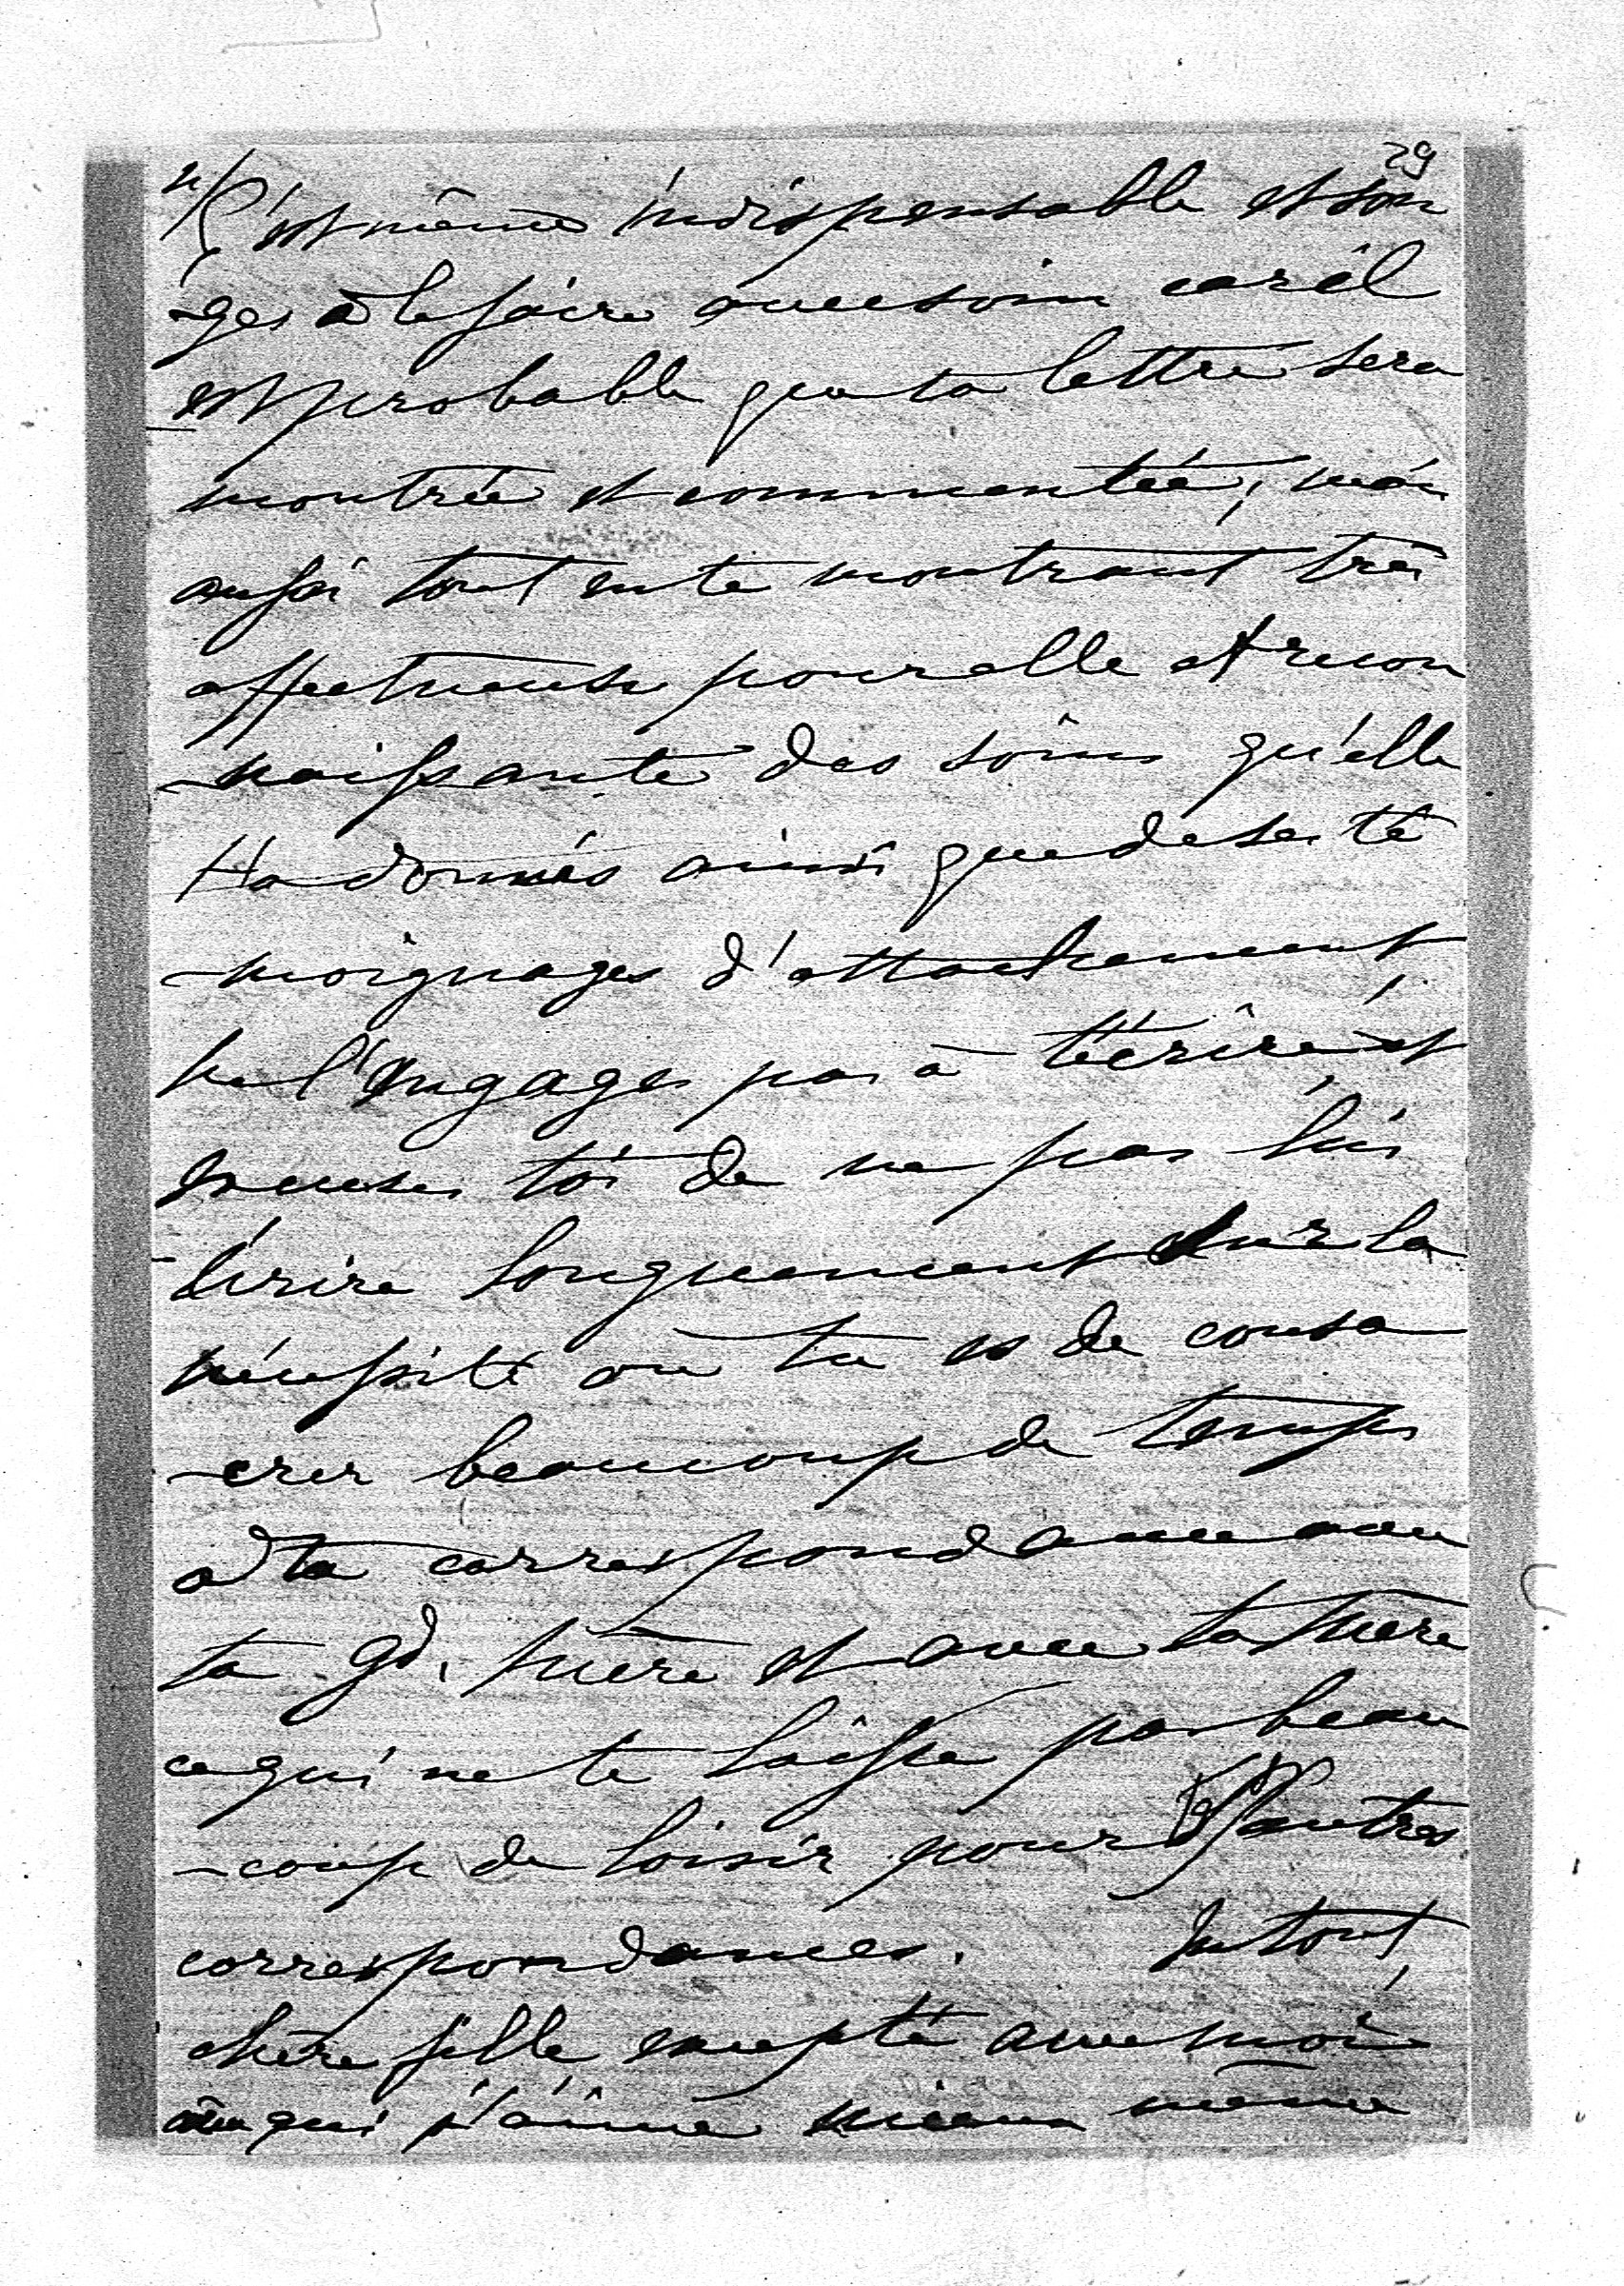 29
2/ C'est même indispensable et son
-ges à le faire avec soin car il
est probable que ta lettre sera
montrée et commentée; mais
aussi tout en te montrant très
affectueuse pour elle et recon
-naissante des soins qu'elle
t'a donnés ainsi que de ses té
-moignages d'attachement,
ne l'engages pas à t'écrire, et
excuses toi de ne pas lui
écrire longuement sur la
nécessité où tu es de consa
-crer beaucoup de temps
à ta correspondance avec
ta gd. mère et avec ta mère
ce qui ne te laisse pas beau
-coup de loisir pour d'autres
correspondances. En tout,
chère fille excepté avec moi
avec qui j'aime mieux même